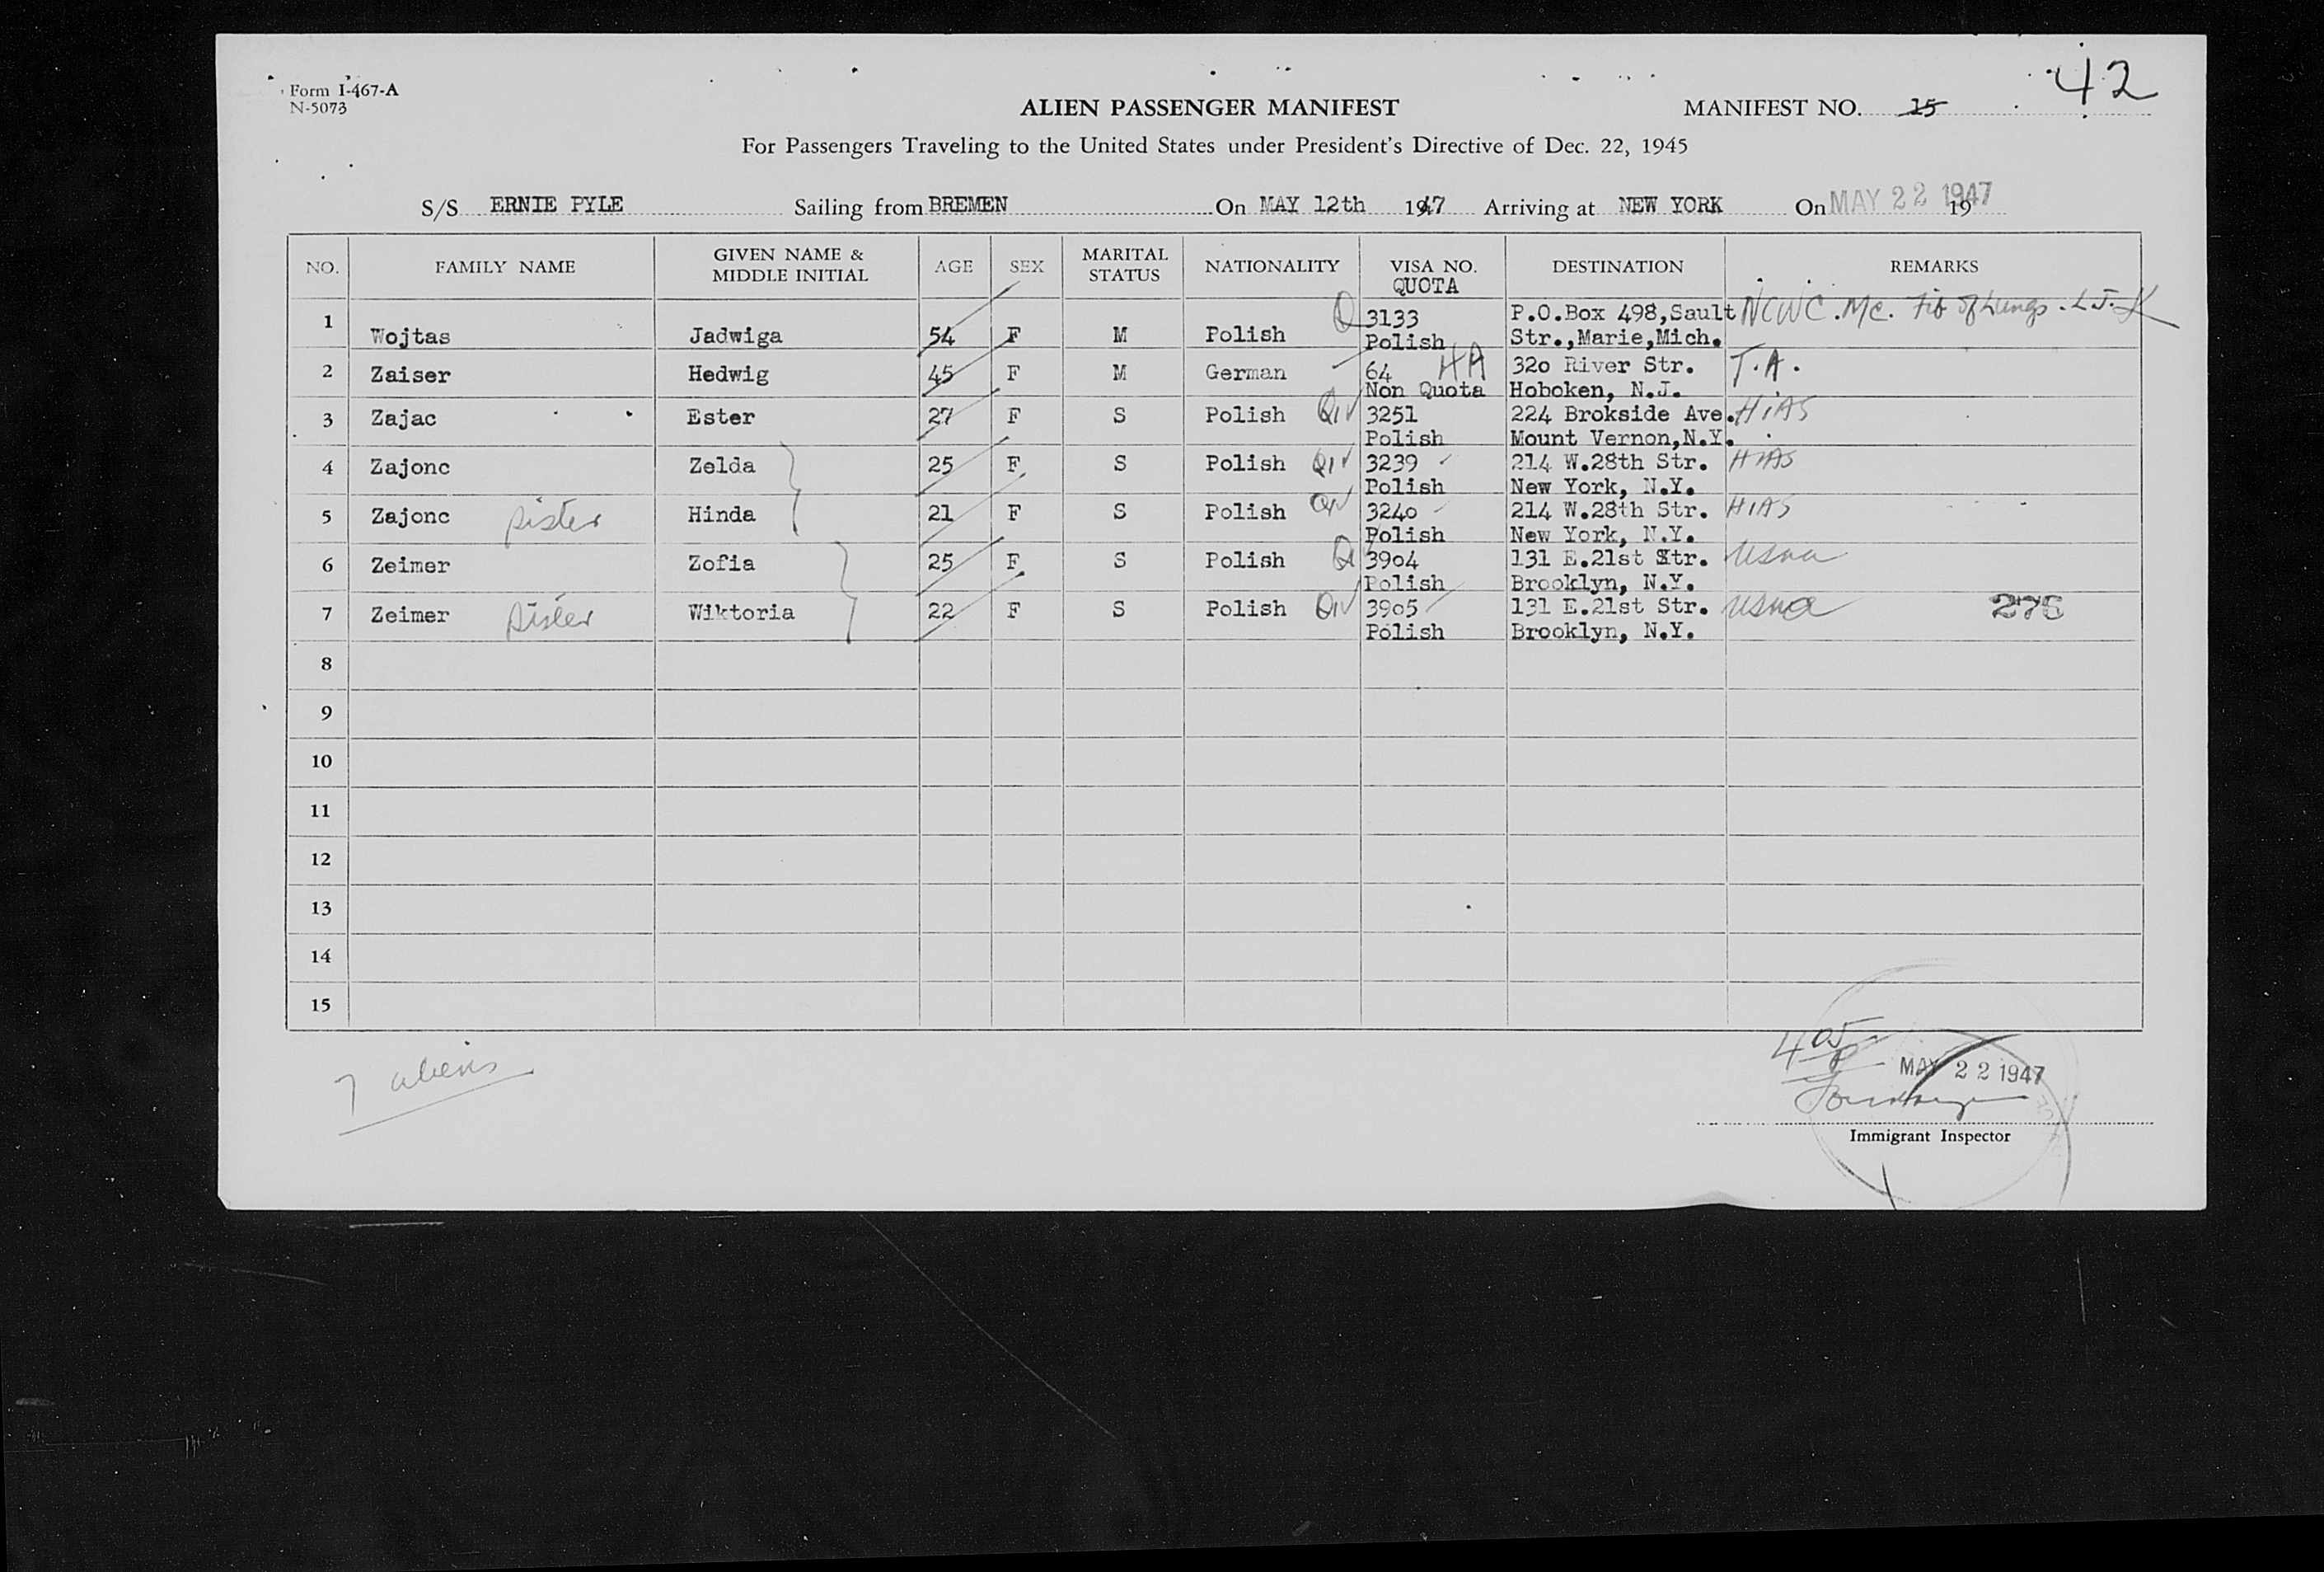 Form I-467-A
N-5073
42
ALIEN PASSENGER MANIFEST
MANIFEST NO. 15
For Passengers Traveling to the United States under President's Directive of Dec. 22, 1945
S/S ERNIE PYLE Sailing from BREMEN On MAY 12th 1947 Arriving at NEW YORK On MAY 22 1947 19
NO. FAMILY NAME GIVEN NAME & MIDDLE INITIAL AGE SEX MARITAL STATUS NATIONALITY VISA NO. QUOTA DESTINATION REMARKS
1 Wojtas Jadwiga 54 F M Polish Q 3133 Polish P.O.Box 498,Sault Str.,Marie,Mich. NCWC. Mc. Fib of Lungs.
2 Zaiser Hedwig 45 F M German 64 HA Non Quota 320 River Str. Hoboken, N.J. T.A.
3 Zajac Ester 27 F S Polish QIV 3251 Polish 224 Brokside Ave. Mount Vernon,N.Y. HIAS
4 Zajonc Zelda 25 F S Polish QIV 3239 Polish 214 W.28th Str. New York, N.Y. HIAS
5 Zajonc sister Hinda 21 F S Polish QIV 3240 Polish 214 W.28th Str. New York, N.Y. HIAS
6 Zeimer Zofia 25 F S Polish 3904 Polish 131 E.21st Str. Brooklyn, N.Y. USNA
7 Zeimer sister Wiktoria 22 F S Polish QIV 3905 Polish 131 E.21st Str. Brooklyn, N.Y. USNA 276
8
9
10
11
12
13
14
15
7 aliens
405 P
MAY 22 1947
Immigrant Inspector